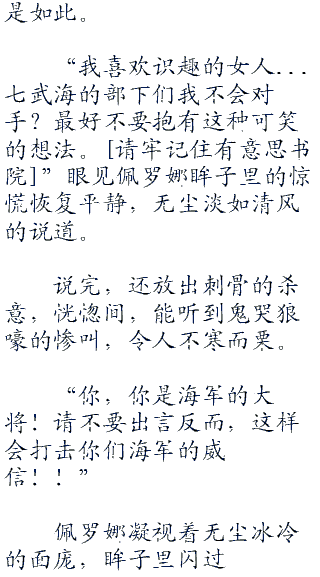 是如此。
“我喜欢识趣的女人...
七武海的部下们我不会对
手？最好不要抱有这种可笑
的想法。[请牢记住有意思书
院]”眼见佩罗娜眸子里的惊
慌恢复平静，无尘淡如清风
的说道。
说完，还放出刺骨的杀
意，恍惚间，能听到鬼哭狼
嚎的惨叫，令人不寒而栗。
“你，你是海军的大
将！请不要出言反而，这样
会打击你们海军的威
信！！”
佩罗娜凝视着无尘冰冷
的面庞，眸子里闪过